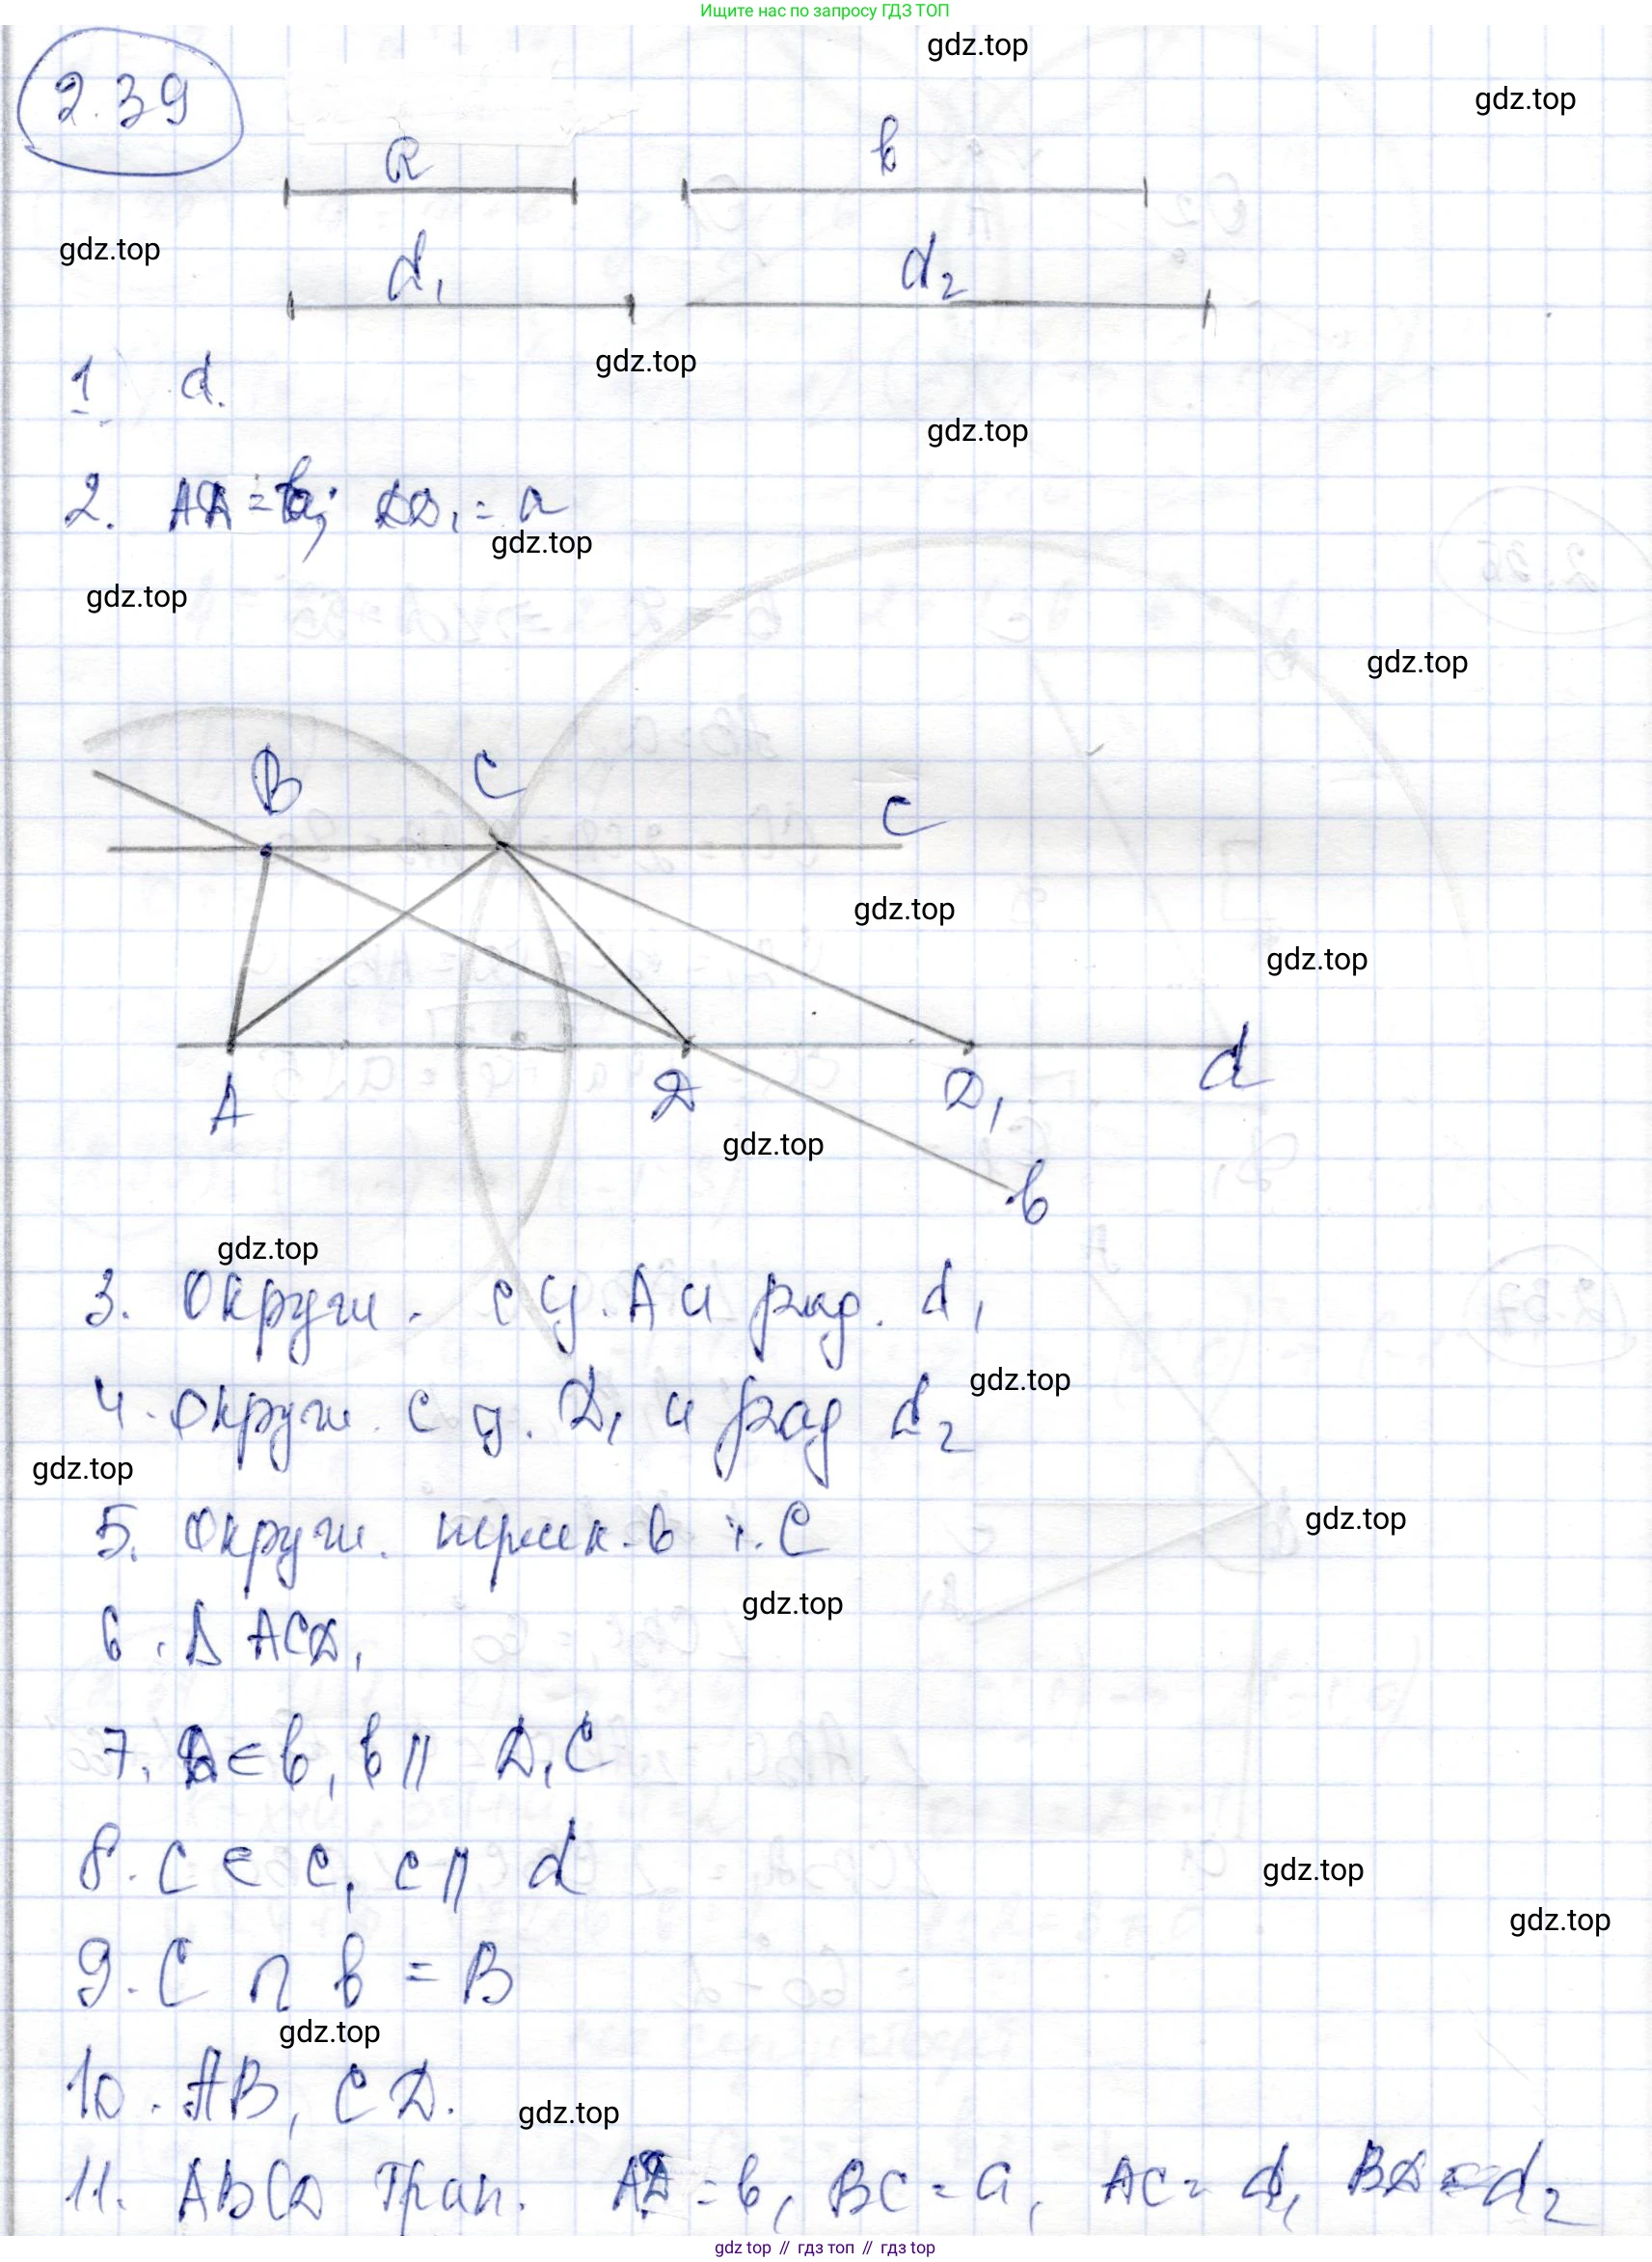 Ищите нас по запросу ГДЗ ТОП
gdz.top
2.39
gdz.top
a b
gdz.top
d₁ d₂
gdz.top
1. d.
gdz.top
2. AД = b; ДД₁ = a
gdz.top
gdz.top
gdz.top
B C c
gdz.top
gdz.top
A Д Д₁ d
gdz.top
b
gdz.top
3. Окружн. с ц. A и рад. d₁
gdz.top
4. Окружн. с ц. Д₁ и рад d₂
gdz.top
5. Окружн. перес к. в т. C
gdz.top
gdz.top
6. Δ ACД₁
7. Д ∈ b, b || Д₁C
8. C ∈ c, c || d
gdz.top
gdz.top
9. C ∩ b = B
gdz.top
10. AB, CД.
gdz.top
11. ABCД трап. AД = b, BC = a, AC = d₁, BД = d₂
gdz top // гдз топ // гдз top